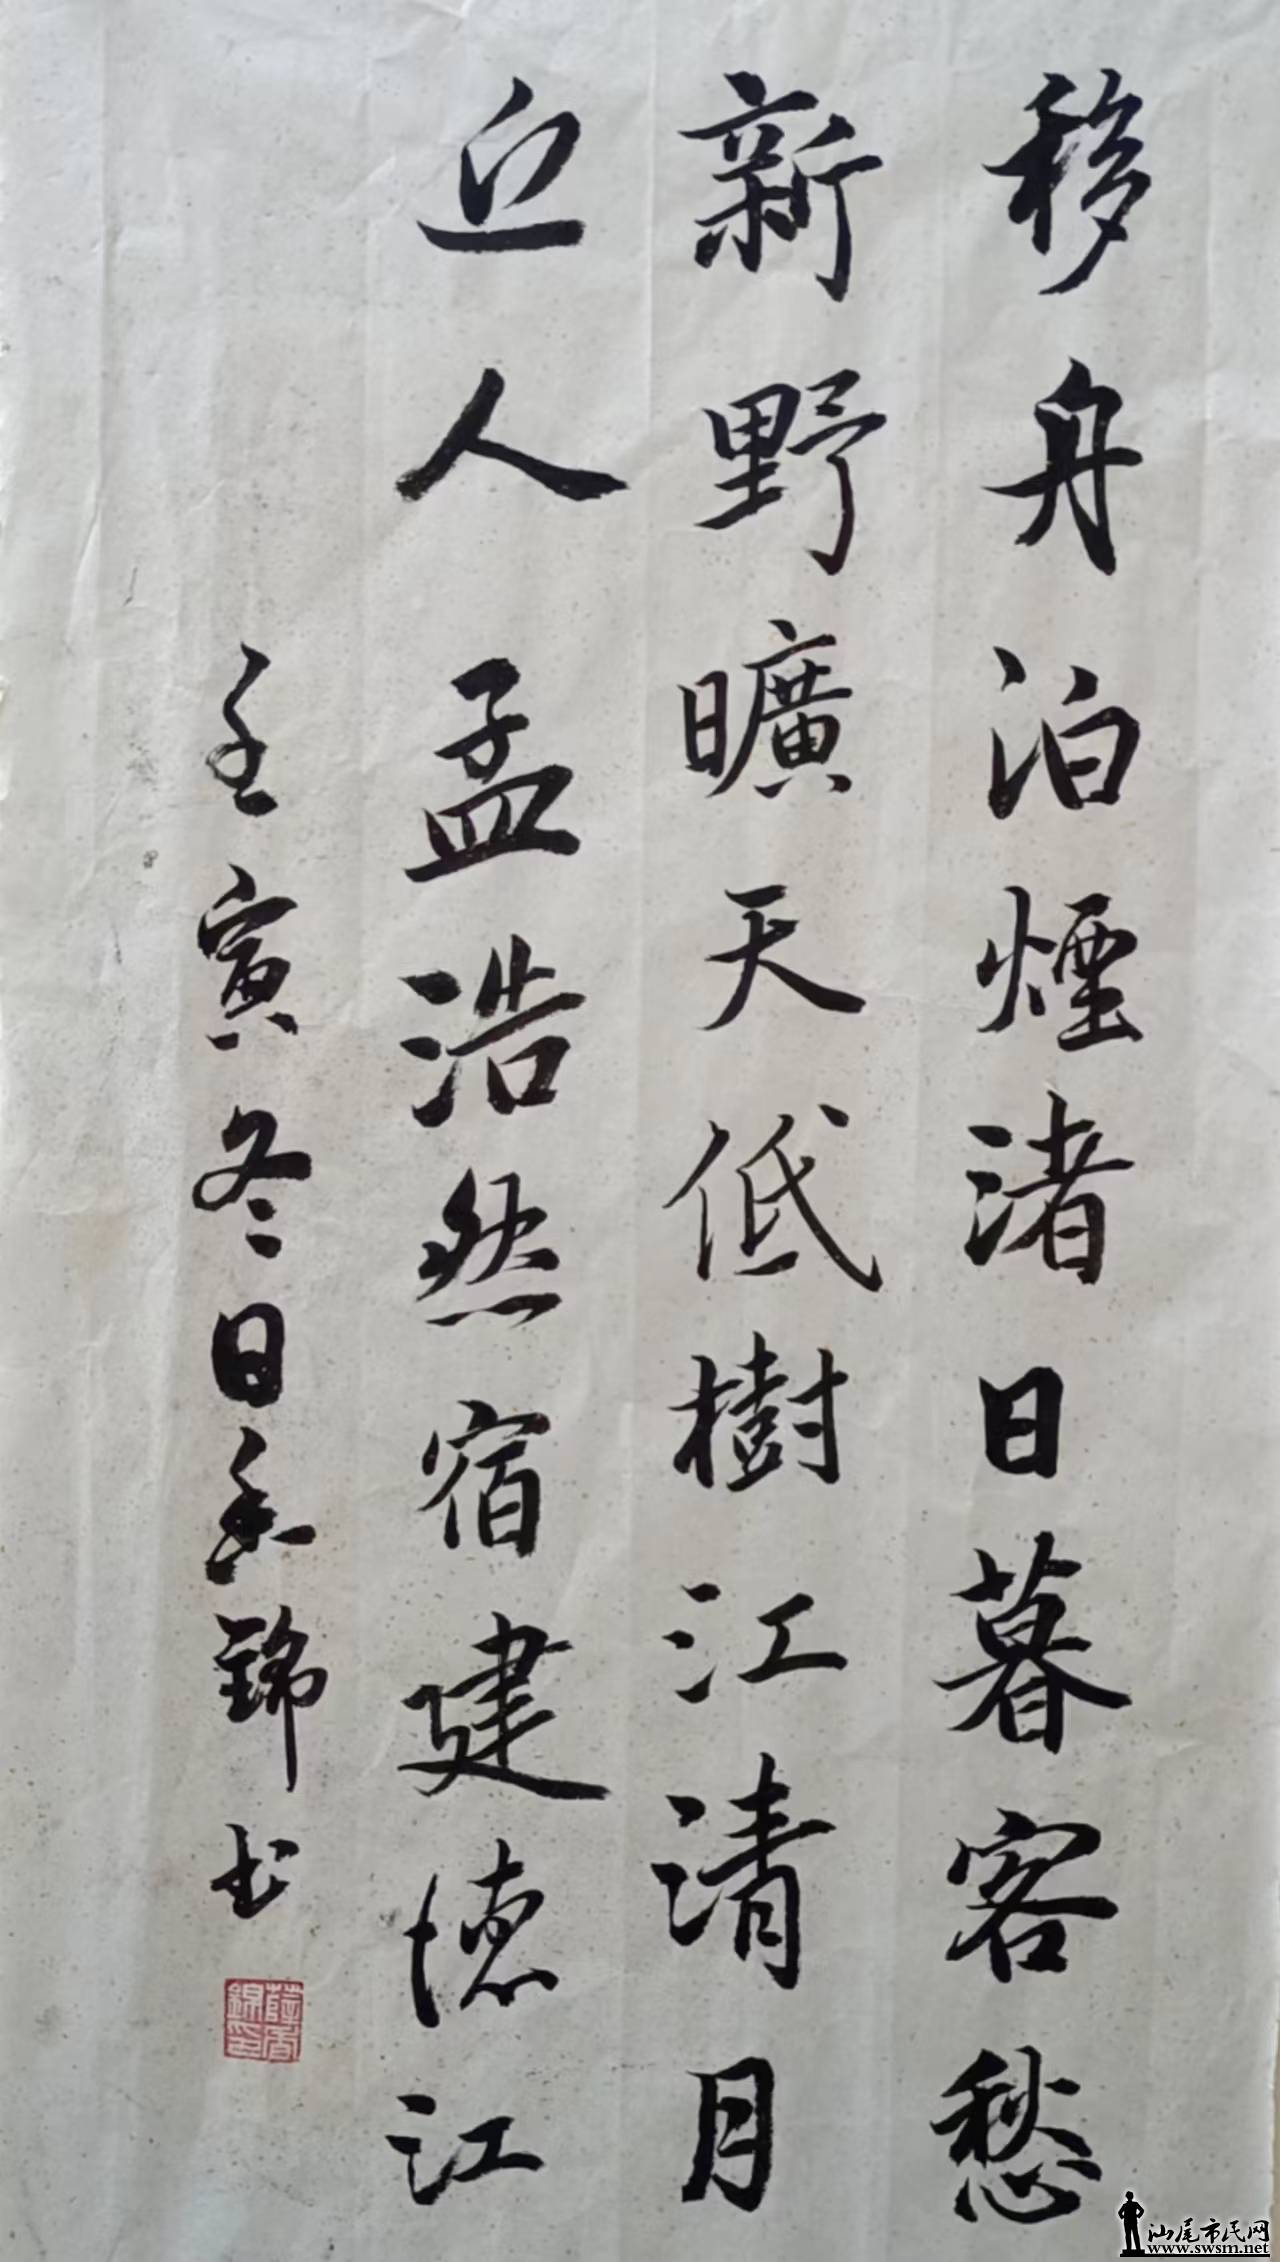 移舟泊煙渚日暮客愁
新野曠天低樹江清月
近人孟浩然宿建德江
壬寅冬日香錦书
薛香錦印
汕尾市民网
www.swsm.net